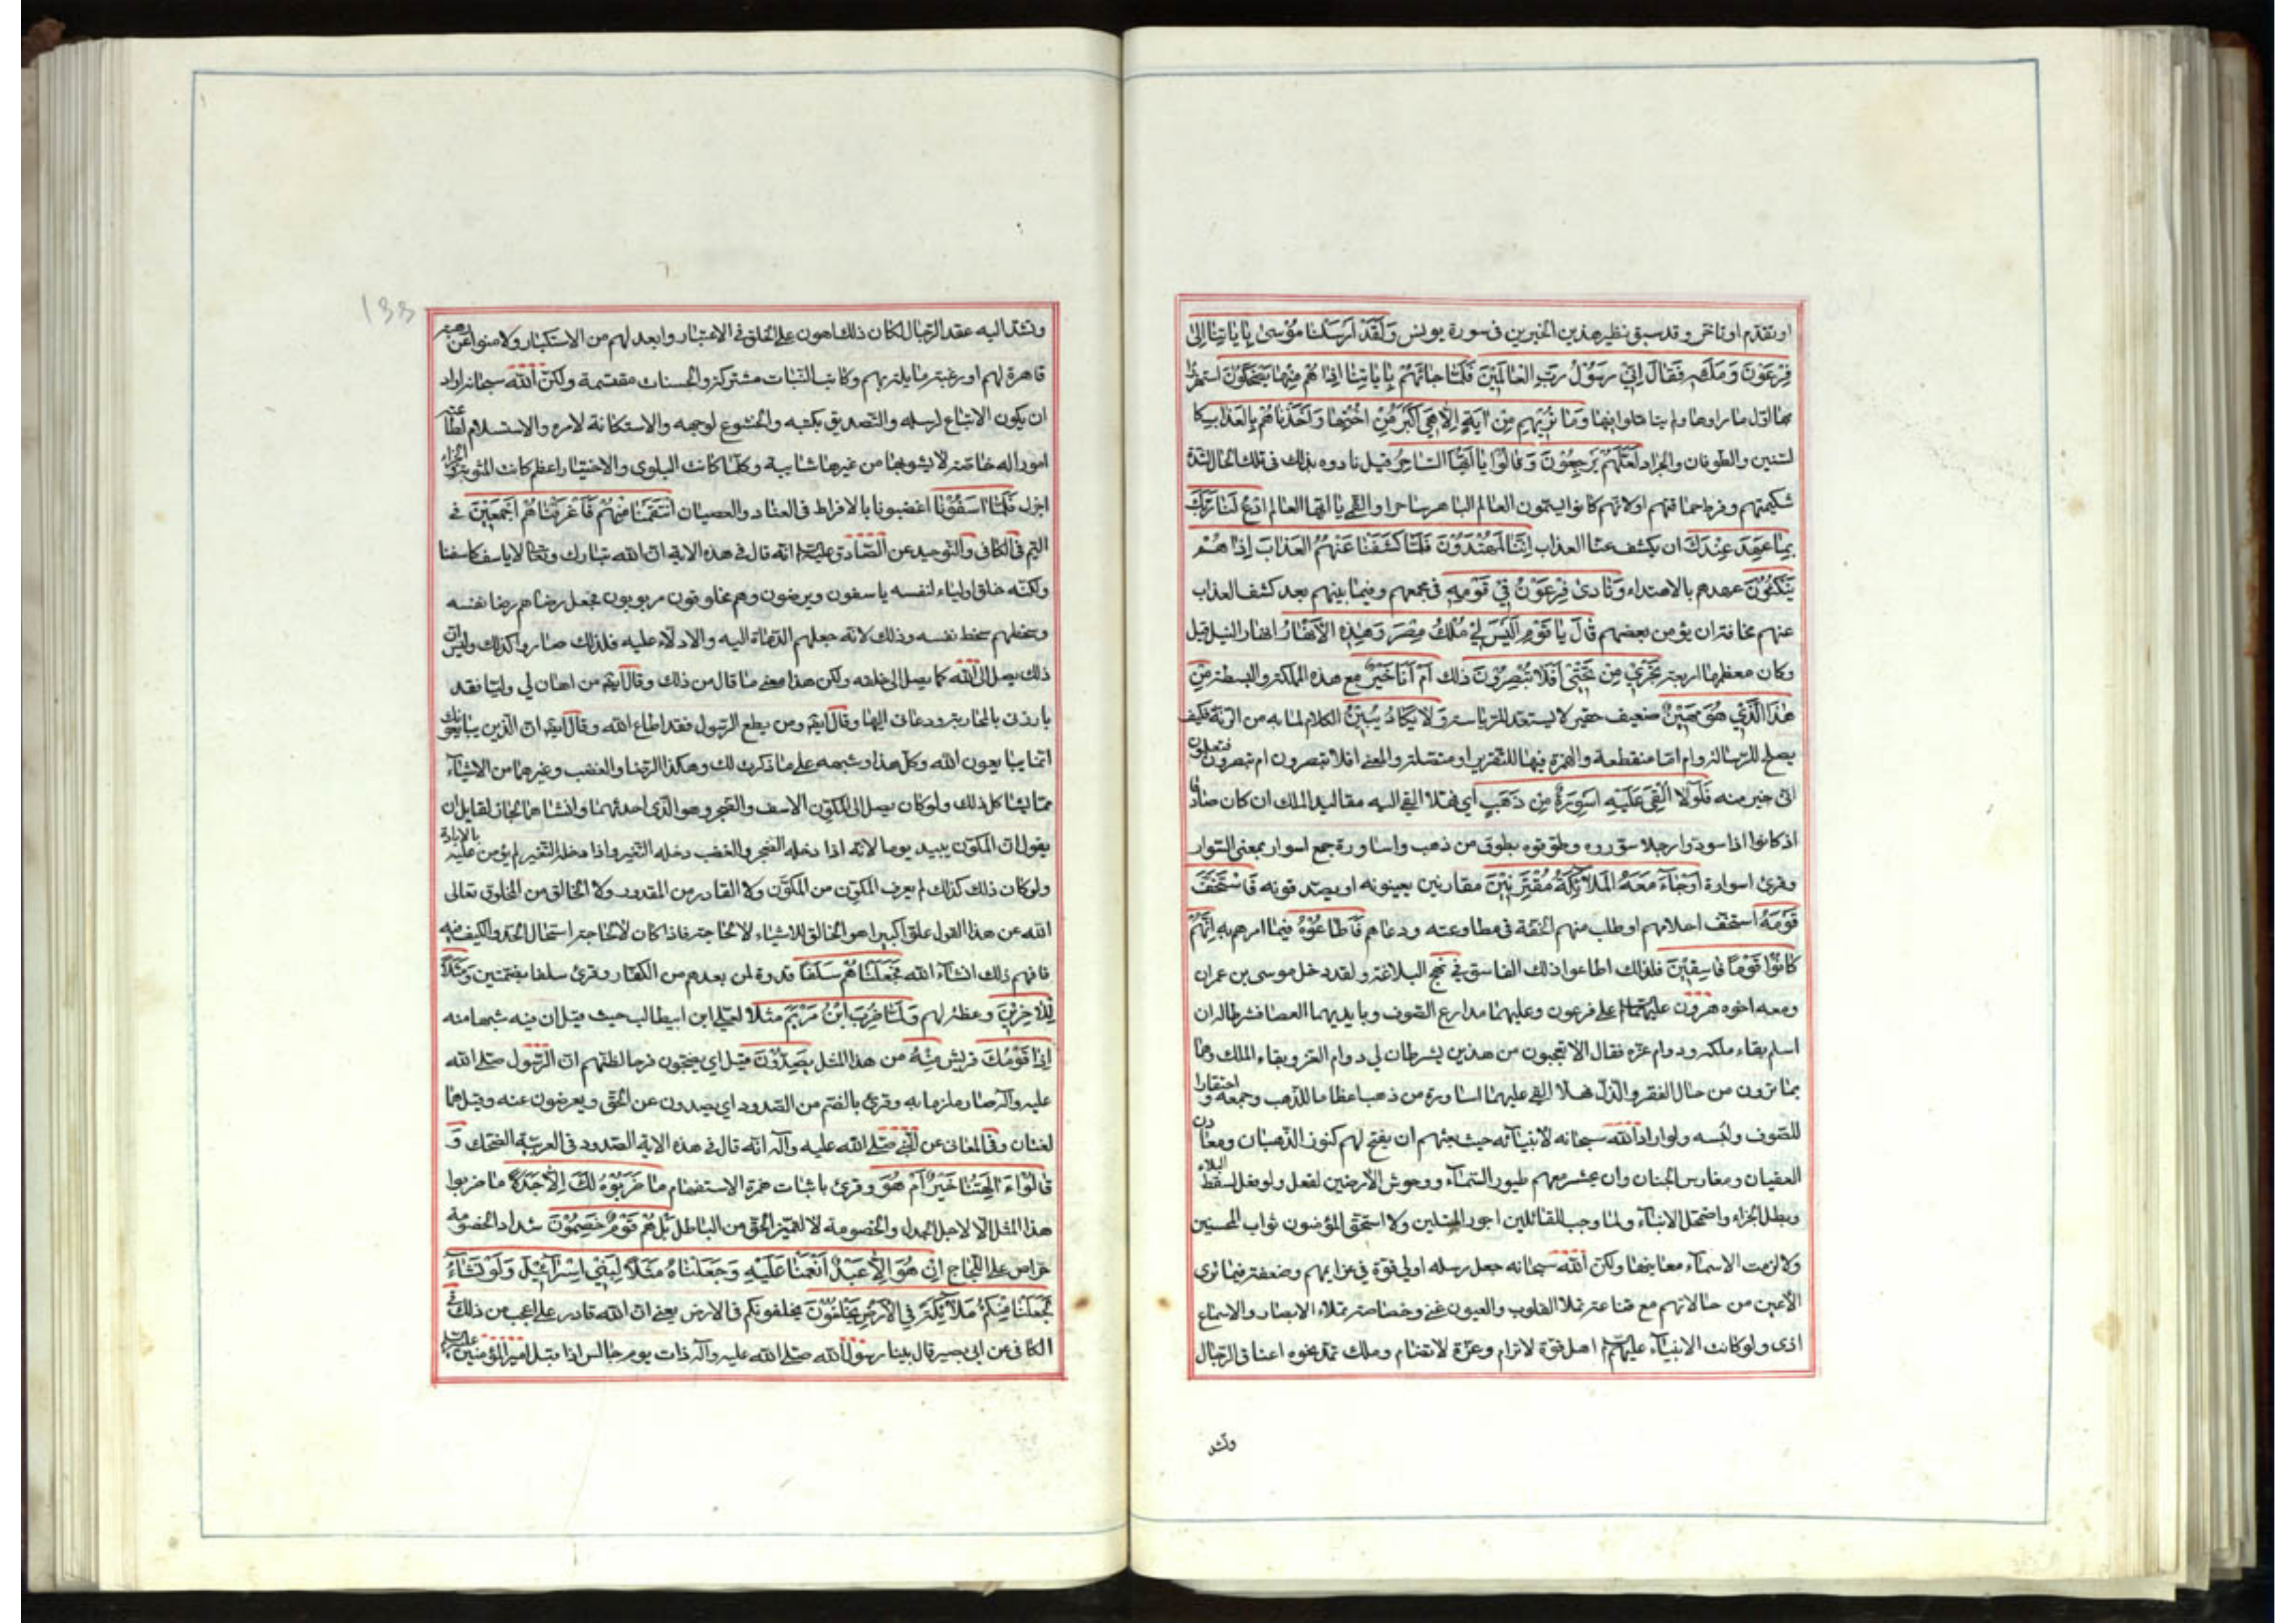 او تقدّم او تاخّر و قد سبق نظير هذين الخبرين فى سورة يونس وَلَقَدْ اَرْسَلْنا مُوْسىٰ بِاٰياتِنا اِلىٰ
فِرْعَوْنَ وَمَلَائِهِ فَقالَ اِنّيْ رَسُوْلُ رَبِّ العالَمِيْنَ فَلَمّا جائَهُمْ بِاٰياتِنا اِذا هُمْ مِنْها يَضْحَكُوْنَ استهزؤا
بها اوّل ما راوها و لم يتامّلوا فيها وَما نُرِيْهِمِ مِنْ اٰيَةٍ اِلّا هِيَ اَكْبَرُ مِنْ اُخْتِها وَاَخَذْناهُمْ بِالعَذابِ كا
لسّنين والطوفان والجراد لَعَلَّهُمْ يَرْجِعُوْنَ وَقالُوْا يا اَيُّهَا السّاحِرُ قيل نادوه بذلك فى تلك الحال لشدّة
شكيمتهم وفرط حماقتهم او لانّهم كانوا يسمّون العالم الباهر ساحرا والقمّى يا ايّها العالم ادْعُ لَنا رَبَّكَ
بِما عَهِدَ عِنْدَكَ ان يكشف عنّا العذاب اِنَّنا لَمُهْتَدُوْنَ فَلَمّا كَشَفْنا عَنْهُمُ العَذابَ اِذا هُمْ
يَنْكُثُوْنَ عهدهم بالاهتداء وَنادىٰ فِرْعَوْنُ فِيْ قَوْمِهِ فى مجمعهم وفيما بينهم بعد كشف العذاب
عنهم مخافة ان يؤمن بعضهم قالَ يا قَوْمِ اَلَيْسَ لِيْ مُلْكُ مِصْرَ وَهٰذِهِ الْاَنْهارُ انهار النيل قيل
وكان معظمها اربعة تَجْرِيْ مِنْ تَحْتِيْ اَفَلا تُبْصِرُوْنَ ذلك اَمْ اَنا خَيْرٌ مع هذه المملكة والبسطة مِنْ
هٰذَا الَّذِيْ هُوَ مَهِيْنٌ ضعيف حقير لا يستعد للرّياسة وَلا يَكادُ يُبِيْنُ الكلام لما به من الرتّة فكيف
يصلح للرّسالة وام امّا منقطعة والهمزة فيها للتقرير او متّصلة والمعنى افلا تبصرون ام تبصرون فتعلمون
انّى خير منه فَلَوْلا اُلْقِيَ عَلَيْهِ اَسْوِرَةٌ مِنْ ذَهَبٍ اى فهلّا القى اليه مقاليد الملك ان كان صادقا
اذ كانوا اذا سوّدوا رجلا سوّروه وطوّقوه بطوق من ذهب واساورة جمع اسوار بمعنى السّوار
وقرئ اسورة اَوْ جاءَ مَعَهُ المَلائِكَةُ مُقْتَرِنِيْنَ مقارنين يعينونه او يصدّقونه فَاسْتَخَفَّ
قَوْمَهُ استخفّ احلامهم او طلب منهم الخفّة فى مطاوعته ودعاهم فَاَطاعُوْهُ فيما امرهم به اِنَّهُمْ
كانُوْا قَوْمًا فاسِقِيْنَ فلذلك اطاعوا ذلك الفاسق فى نهج البلاغة ولقد دخل موسى بن عمران
ومعه اخوه هرون عليهما السلام على فرعون وعليهما مدارع الصّوف وبايديهما العصا فشرطا له ان
اسلم بقاء ملكه ودوام عزّه فقال الا تعجبون من هذين يشرطان لى دوام العزّ وبقاء الملك وهما
بما ترون من حال الفقر والذّل فهلّا القى عليهما اساورة من ذهب اعظاما للذّهب وجمعه واحتقارا
للصّوف ولبسه ولو اراد اللّه سبحانه لانبيائه حيث بعثهم ان يفتح لهم كنوز الذّهبان ومعادن
العقيان ومغارس الجنان وان يحشر معهم طيور السّماء ووحوش الارضين لفعل ولو فعل لسقط البلاء
وبطل الجزاء واضمحلّ الانباء ولما وجب للقائلين اجور المبتلين ولا استحقّ المؤمنون ثواب المحسنين
ولا لزمت الاسماء معانيها ولكن اللّه سبحانه جعل رسله اولى قوّة فى عزايمهم وضعفة فيما ترى
الاعين من حالاتهم مع قناعة تملا القلوب والعيون غنى وخصاصة تملاء الابصار والاسماع
اذى ولو كانت الانبياء عليهم السلام اهل قوّة لا ترام وعزّة لا تضام وملك تمدّ نحوه اعناق الرّجال
وتشد
133
وتشدّ اليه عقد الرّحال لكان ذلك اهون على الخلق فى الاعتبار وابعد لهم من الاستكبار ولامنوا عن رهبة
قاهرة لهم او رغبة مايلة بهم وكانت النيّات مشتركة والحسنات مقتسمة ولكنّ اللّه سبحانه اراد
ان يكون الاتّباع لرسله والتّصديق بكتبه والخشوع لوجهه والاستكانة لامره والاستسلام لطاعته
امورا له خاصّة لا يشوبها من غيرها شايبة وكلّما كانت البلوى والاختبار اعظم كانت المثوبة والجزاء
اجزل فَلَمّا اٰسَفُوْنا اغضبونا بالافراط فى العناد والعصيان انْتَقَمْنا مِنْهُمْ فَاَغْرَقْناهُمْ اَجْمَعِيْنَ فى
اليمّ فى الكافى والتّوحيد عن الصّادق عليه السلام انّه قال فى هذه الاية انّ اللّه تبارك وتعالى لا ياسف كاسفنا
ولكنّه خلق اولياء لنفسه ياسفون ويرضون وهم مخلوقون مربوبون فجعل رضاهم رضا نفسه
وسخطهم سخط نفسه وذلك لانّه جعلهم الدّعاة اليه والادلّاء عليه فلذلك صاروا كذلك وليس ان
ذلك يصل الى اللّه كما يصل الى خلقه ولكن هذا معنى ما قال من ذلك وقال ايضا من اهان لى وليّا فقد
بارزنى بالمحاربة ودعانى اليها وقال ايضا ومن يطع الرّسول فقد اطاع اللّه وقال ايضا انّ الّذين يبايعونك
انّما يبايعون اللّه وكلّ هذا وشبهه على ما ذكرت لك وهكذا الرّضا والغضب وغيرهما من الاشياء
ممّا يشاكل ذلك ولو كان يصل الى المكوّن الاسف والضّجر وهو الّذى احدثهما وانشاهما لجاز لقايل ان
يقول انّ المكوّن يبيد يوما لانّه اذا دخله الضجر والغضب دخله التّغير واذا دخله التّغير لم يؤمن عليه بالابادة
ولو كان ذلك كذلك لم يعرف المكوِّن من المكوَّن ولا القادر من المقدور ولا الخالق من المخلوق تعالى
اللّه عن هذا القول علوّا كبيرا هو الخالق للاشياء لا لحاجة فاذا كان لا لحاجة استحال الحدّ والكيف فيه
فافهم ذلك انشاء اللّه فَجَعَلْناهُمْ سَلَفًا قدوة لمن بعدهم من الكفّار وقرئ سلفا بضمّتين وَمَثَلًا
لِلْاٰخِرِيْنَ وعظة لهم وَلَمّا ضُرِبَ ابْنُ مَرْيَمَ مَثَلًا لعلىّ ابن ابيطالب حيث قيل ان فيه شبها منه
اِذا قَوْمُكَ قريش مِنْهُ من هذا المثل يَصِدُّوْنَ قيل اى يضجّون فرحا لظنّهم انّ الرّسول صلّى اللّه
عليه وآله صار ملزما به وقرئ بالضّم من الصّدود اى يصدون عن الحقّ ويعرضون عنه وقيل هما
لغتان وفى المعانى عن النّبي صلّى اللّه عليه وآله انّه قال فى هذه الاية الصّدود فى العربيّة الضّحك وَ
قالُوْا ءَاٰلِهَتُنا خَيْرٌ اَمْ هُوَ وقرئ باثبات همزة الاستفهام ما ضَرَبُوْهُ لَكَ اِلّا جَدَلًا ما ضربوا
هذا المثل الّا لاجل الجدل والخصومة لا لتميّز الحقّ من الباطل بَلْ هُمْ قَوْمٌ خَصِمُوْنَ شداد الخصومة
حراص على اللّجاج اِنْ هُوَ اِلّا عَبْدٌ اَنْعَمْنا عَلَيْهِ وَجَعَلْناهُ مَثَلًا لِبَنِيْ اِسْرائِيْلَ وَلَوْ نَشاءُ
لَجَعَلْنا مِنْكُمْ مَلائِكَةً فِي الْاَرْضِ يَخْلُفُوْنَ يخلفونكم فى الارض يعنى انّ اللّه قادر على اعجب من ذلك فى
الكافى عن ابى بصير قال بينا رسول اللّه صلّى اللّه عليه وآله ذات يوم جالس اذا قبل امير المؤمنين عليه السلام